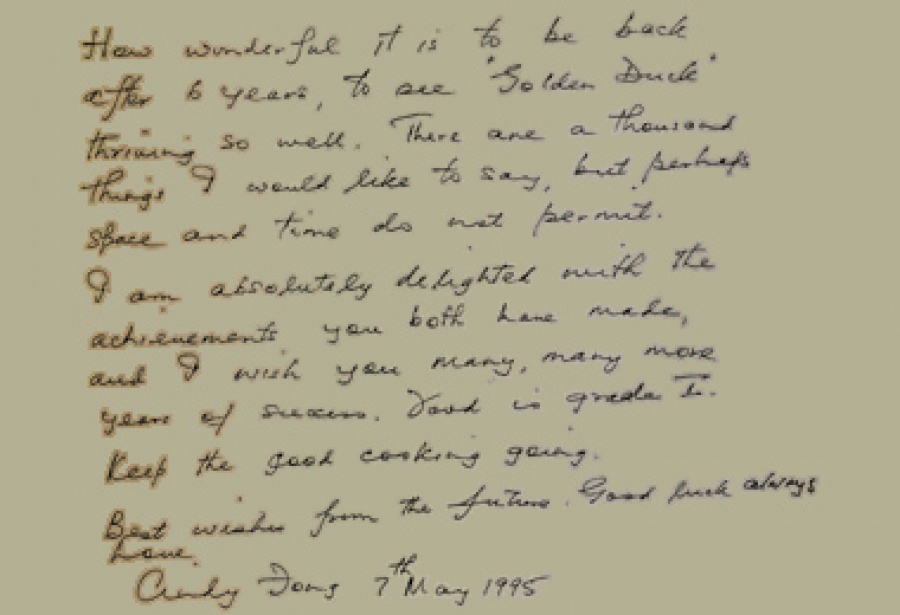 How wonderful it is to be back
after 6 years, to see "Golden Duck"
thriving so well. There are a thousand
things I would like to say, but perhaps
space and time do not permit.
I am absolutely delighted with the
achievements you both have made,
and I wish you many, many more
years of success. Food is grade I.
Keep the good cooking going.
Best wishes from the future. Good luck always
Love.
Cindy 7th May 1995